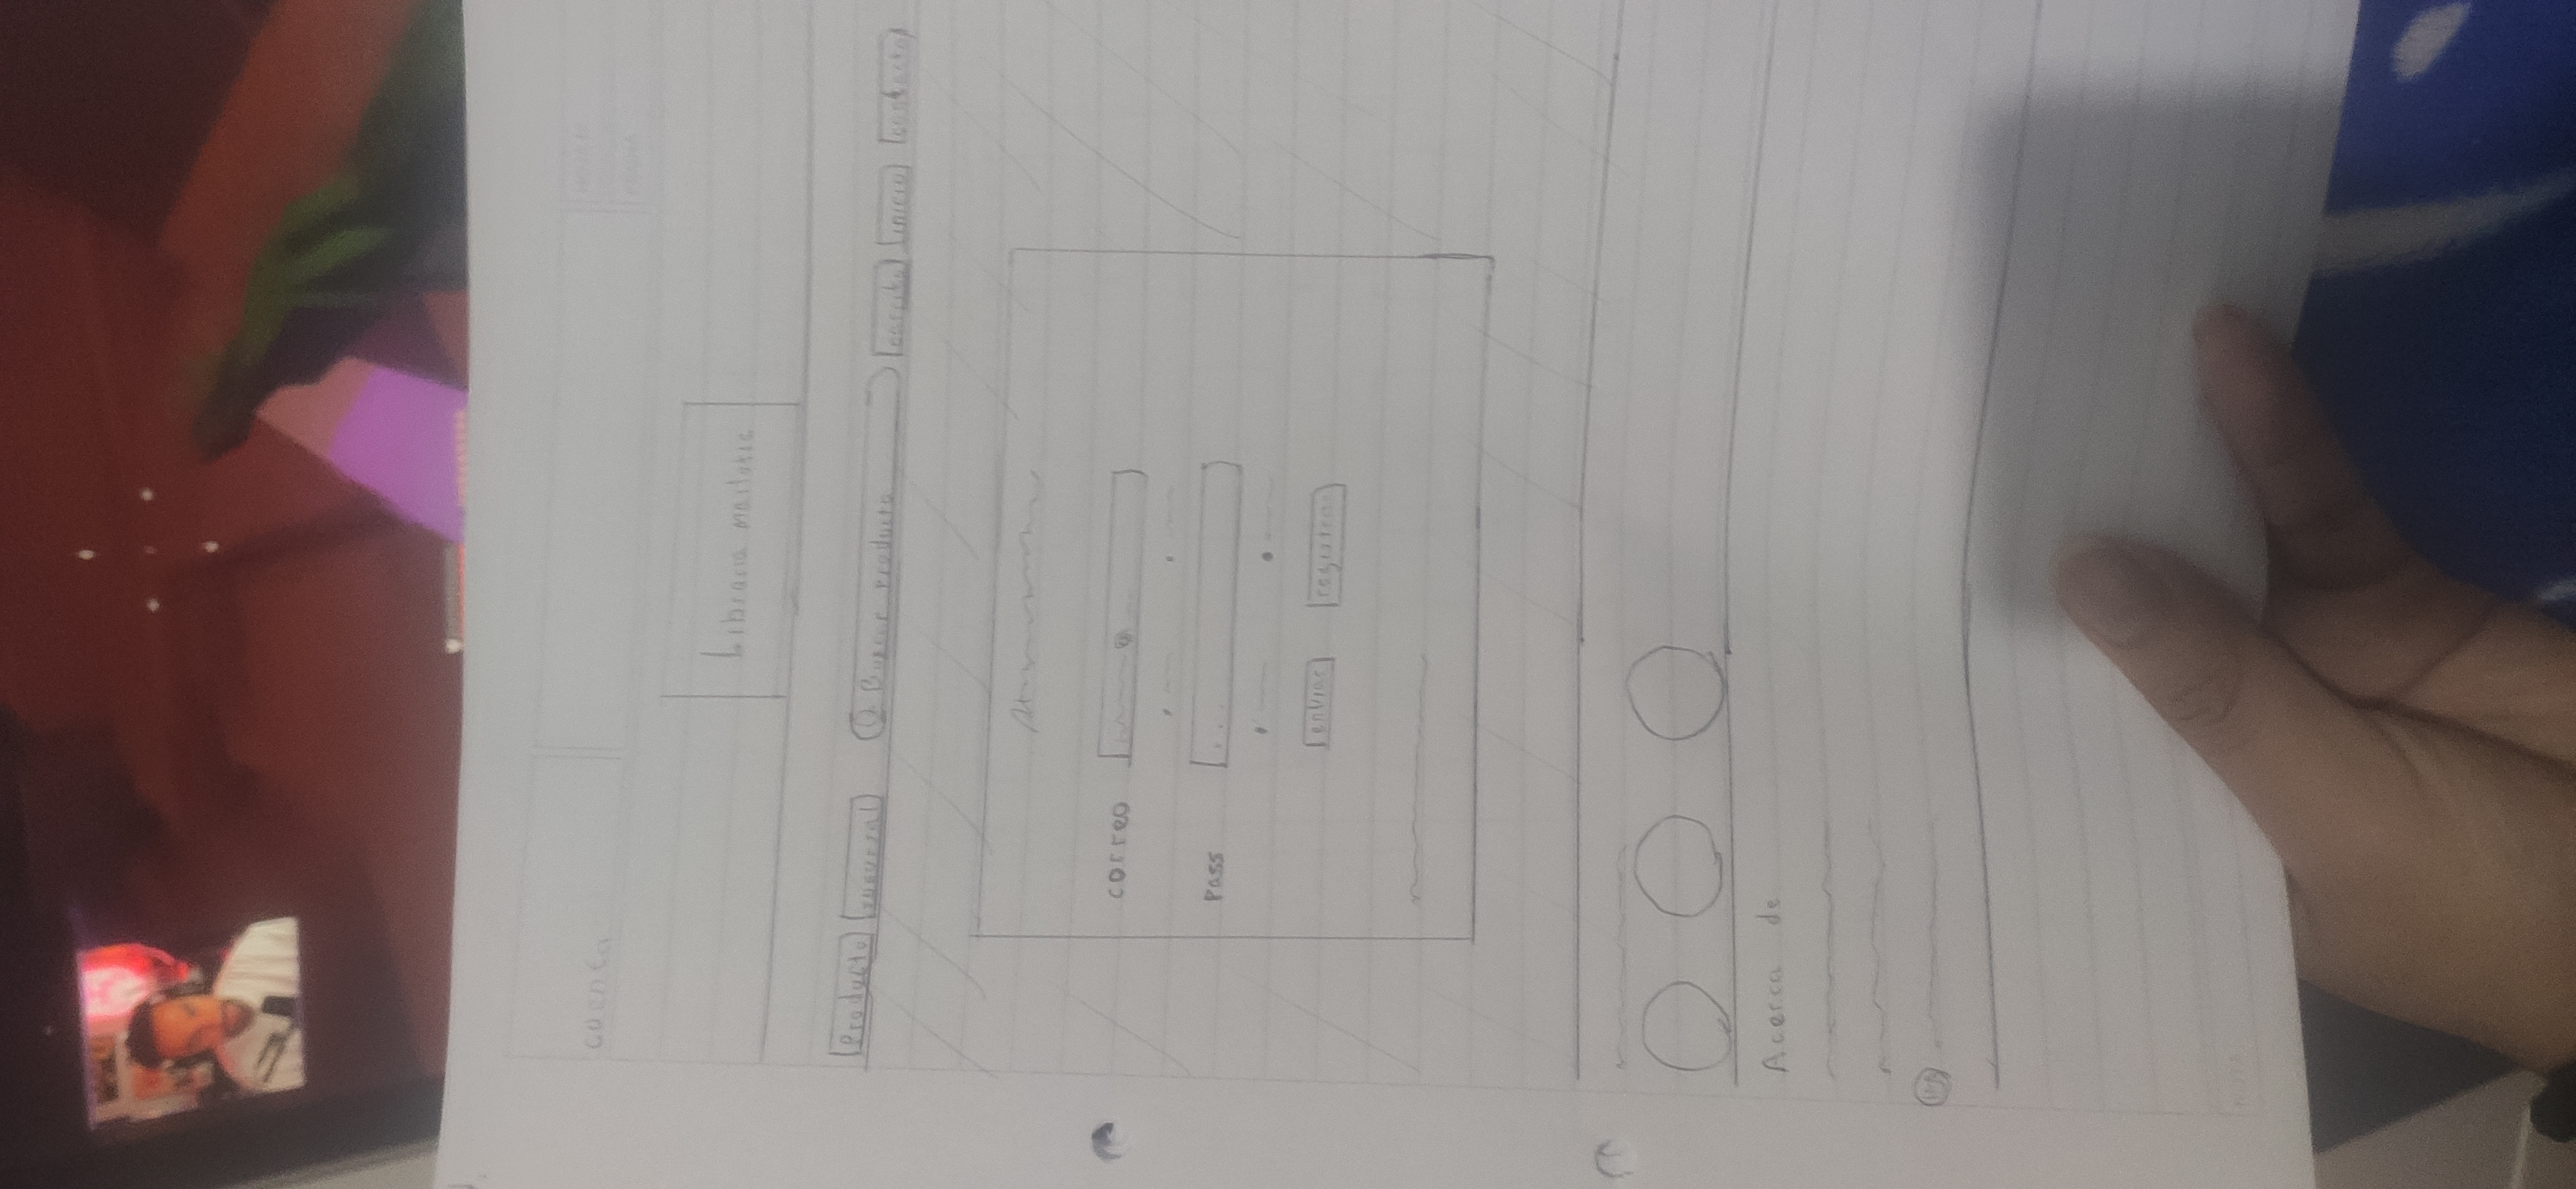 cuenta
Libraria
Producto sucursal Buscar producto carrito inicio contacto
correo
pass
...
enviar registrar
Acerca de